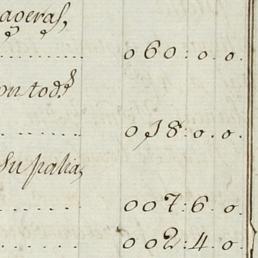 ............ 060: 0. 0.
on tod.s
............ 018. 0. 0.
Su palia,
............ 007: 6. 0.
............ 002: 4. 0.